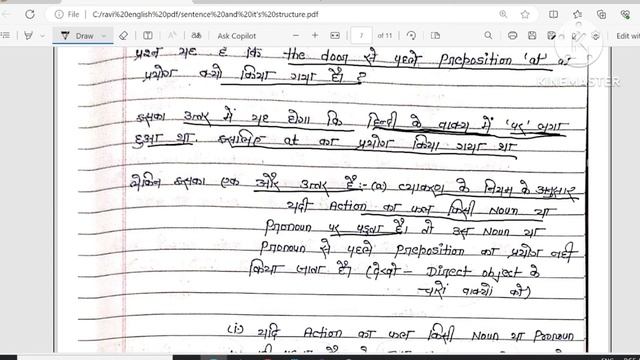 File
C:/ravi%20english%20pdf/sentence%20and%20it's%20structure.pdf
Draw
Ask Copilot
7
of 11
KINEMASTER
प्रश्न यह है कि the door से पहले Preposition 'at' का
प्रयोग क्यों किया गया है?
इसका उत्तर में यह होगा कि हिन्दी के वाक्य में 'पर' लगा
हुआ था. इसलिए at का प्रयोग किया गया था
लेकिन इसका एक और उत्तर है:- (a) व्याकरण के नियम के अनुसार
यदी Action का फल किसी Noun या
Pronoun पर पड़ता है। तो उस Noun या
Pronoun से पहले Preposition का प्रयोग नहीं
किया जाता है। (देखो - Direct object के
चारों वाक्यों को)
(i) यदि Action का फल किसी Noun या Pronoun